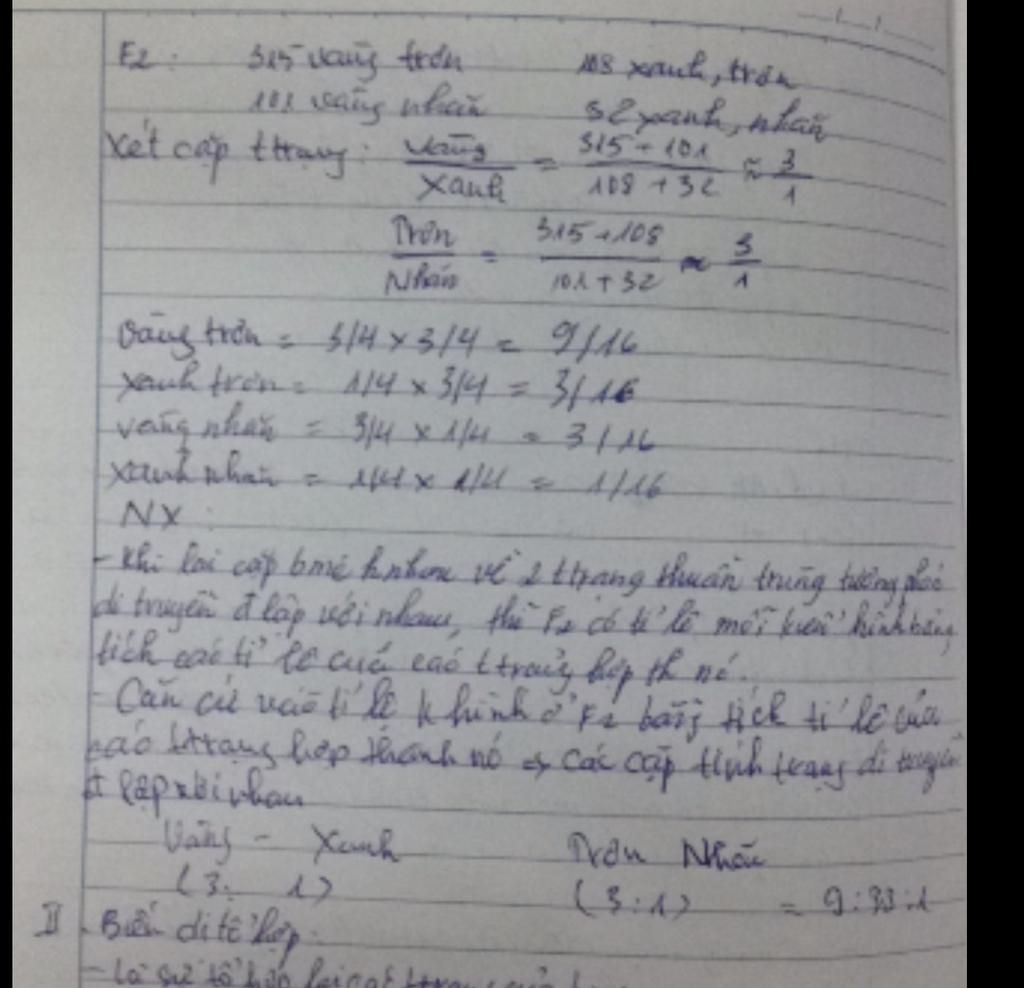 F2: 315 vàng trơn 108 xanh, trơn
101 vàng nhăn 32 xanh, nhăn
Xét cặp ttrạng: Vàng / Xanh = 315 + 101 / 108 + 32 ≈ 3 / 1
Trơn / Nhăn = 315 + 108 / 101 + 32 ≈ 3 / 1
Vàng trơn = 3/4 x 3/4 = 9/16
xanh trơn = 1/4 x 3/4 = 3/16
vàng nhăn = 3/4 x 1/4 = 3/16
xanh nhăn = 1/4 x 1/4 = 1/16
NX:
- Khi lai cặp bmẹ knhau về 2 ttrạng thuần trủng tương phản
di truyền đ lập với nhau, thì F2 có tỉ lệ mỗi kiểu hình bằng
tích các tỉ lệ của các ttrạng hợp th nó.
- Căn cứ vào tỉ lệ k hình ở F2 bằng tích tỉ lệ của
các ttrạng hợp thành nó => các cặp tính trạng di truyền
đ lập với nhau
Vàng - Xanh Trơn Nhăn
(3: 1) (3:1) = 9:33:1
II. Biến dị tổ hợp:
- Là sự tổ hợp lại các ttrạng của